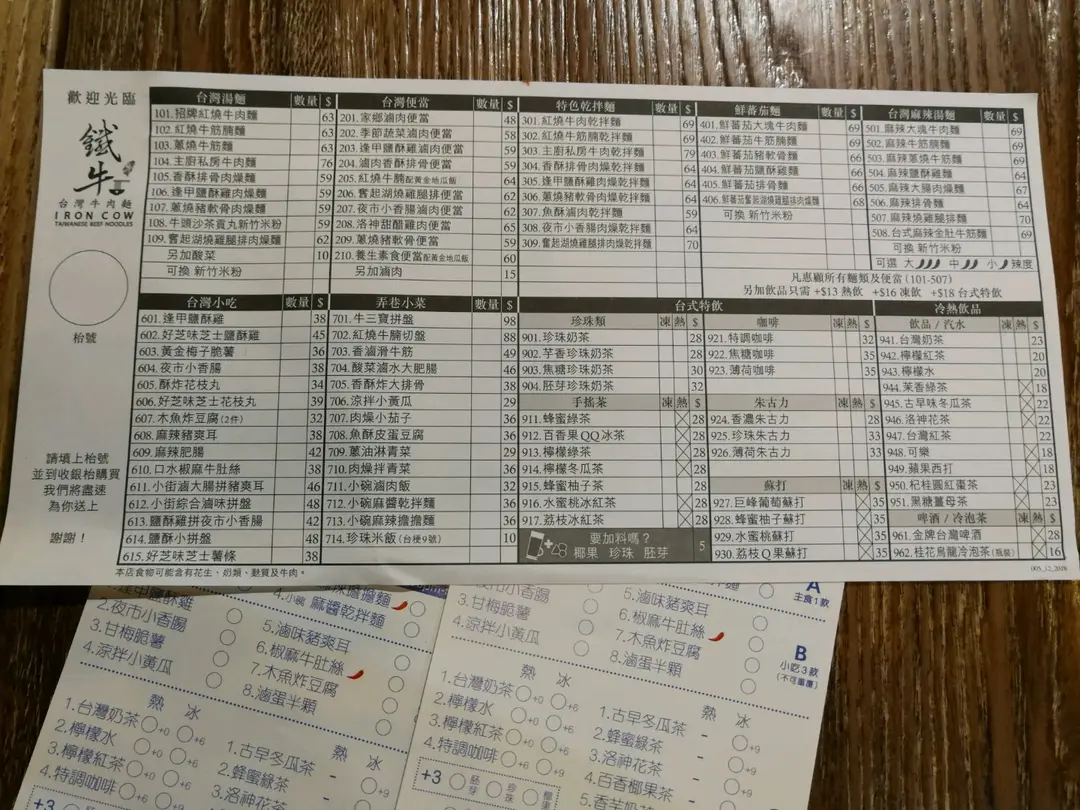 歡迎光臨
鐵牛
台灣牛肉麵
IRON COW
TAIWANESE BEEF NOODLES
枱號
請填上枱號
並到收銀枱購買
我們將盡速
為你送上
謝謝！
台灣湯麵 數量 $
101.招牌紅燒牛肉麵 63
102.紅燒牛筋腩麵 59
103.蔥燒牛筋麵 63
104.主廚私房牛肉麵 76
105.香酥排骨肉燥麵 59
106.逢甲鹽酥雞肉燥麵 59
107.蔥燒豬軟骨肉燥麵 59
108.牛頭沙茶貢丸新竹米粉 59
109.奮起湖燒雞腿排肉燥麵 62
另加酸菜 10
可換 新竹米粉
台灣便當 數量 $
201.家鄉滷肉便當 48
202.季節蔬菜滷肉便當 58
203.逢甲鹽酥雞滷肉便當 59
204.滷肉香酥排骨便當 64
205.紅燒牛腩配黃金地瓜飯 64
206.奮起湖燒雞腿排便當 62
207.夜市小香腸滷肉便當 62
208.洛神甜醋雞肉便當 65
209.蔥燒豬軟骨便當 62
210.養生素食便當配黃金地瓜飯 60
另加滷肉 15
特色乾拌麵 數量 $
301.紅燒牛肉乾拌麵 69
302.紅燒牛筋腩乾拌麵 69
303.主廚私房牛肉乾拌麵 79
304.香酥排骨肉燥乾拌麵 64
305.逢甲鹽酥雞肉燥乾拌麵 64
306.蔥燒豬軟骨肉燥乾拌麵 64
307.魚酥滷肉乾拌麵 59
308.夜市小香腸肉燥乾拌麵 64
309.奮起湖燒雞腿排肉燥乾拌麵 70
鮮蕃茄麵 數量 $
401.鮮蕃茄大塊牛肉麵 69
402.鮮蕃茄牛筋腩麵 69
403.鮮蕃茄豬軟骨麵 66
404.鮮蕃茄鹽酥雞麵 66
405.鮮蕃茄排骨麵 66
406.鮮蕃茄奮起湖燒雞腿排肉燥麵 68
可換 新竹米粉
台灣麻辣湯麵 數量 $
501.麻辣大塊牛肉麵 69
502.麻辣牛筋腩麵 69
503.麻辣蔥燒牛筋麵 66
504.麻辣鹽酥雞麵 66
505.麻辣大腸肉燥麵 67
506.麻辣排骨麵 64
507.麻辣燒雞腿排麵 70
508.台式麻辣金肚牛筋麵 69
可換 新竹米粉
可選 大 中 小 辣度
凡惠顧所有麵類及便當 (101-507)
另加飲品只需 +$13 熱飲 +$16 凍飲 +$18 台式特飲
台灣小吃 數量 $
601.逢甲鹽酥雞 38
602.好芝味芝士鹽酥雞 45
603.黃金梅子脆薯 36
604.夜市小香腸 38
605.酥炸花枝丸 34
606.好芝味芝士花枝丸 39
607.木魚炸豆腐(2件) 32
608.麻辣豬爽耳 38
609.麻辣肥腸 42
610.口水椒麻牛肚絲 38
611.小街滷大腸拼豬爽耳 46
612.小街綜合滷味拼盤 48
613.鹽酥雞拼夜市小香腸 42
614.鹽酥小拼盤 54
615.好芝味芝士薯條 38
弄巷小菜 數量 $
701.牛三寶拼盤 98
702.紅燒牛腩切盤 88
703.香滷滑牛筋 49
704.酸菜滷水大肥腸 46
705.香酥炸大排骨 38
706.涼拌小黃瓜 29
707.肉燥小茄子 36
708.魚酥皮蛋豆腐 36
709.蔥油淋青菜 29
710.肉燥拌青菜 36
711.小碗滷肉飯 32
712.小碗麻醬乾拌麵 36
713.小碗麻辣擔擔麵 36
714.珍珠米飯(台梗9號) 10
台式特飲
珍珠類 凍 熱 $
901.珍珠奶茶 28
902.芋香珍珠奶茶 28
903.焦糖珍珠奶茶 30
904.胚芽珍珠奶茶 32
手搖茶 凍 熱 $
911.蜂蜜綠茶 28
912.百香果QQ冰茶 28
913.檸檬綠茶 28
914.檸檬冬瓜茶 28
915.蜂蜜柚子茶 28
916.水蜜桃冰紅茶 28
917.荔枝冰紅茶 28
要加料嗎？
椰果 珍珠 胚芽 5
咖啡 凍 熱 $
921.特調咖啡 32
922.焦糖咖啡 35
923.薄荷咖啡 35
朱古力 凍 熱 $
924.香濃朱古力 28
925.珍珠朱古力 33
926.薄荷朱古力 33
蘇打 凍 熱 $
927.巨峰葡萄蘇打 35
928.蜂蜜柚子蘇打 35
929.水蜜桃蘇打 35
930.荔枝Q果蘇打 35
冷熱飲品
飲品 / 汽水 凍 熱 $
941.台灣奶茶 23
942.檸檬紅茶 20
943.檸檬水 20
944.茉香綠茶 18
945.古早味冬瓜茶 22
946.洛神花茶 22
947.台灣紅茶 22
948.可樂 18
949.蘋果西打 18
950.杞桂圓紅棗茶 23
951.黑糖薑母茶 23
啤酒 / 冷泡茶 凍 熱 $
961.金牌台灣啤酒 28
962.桂花烏龍冷泡茶(瓶裝) 16
本店食物可能含有花生、奶類、麩質及牛肉。
005_12_2018
2.夜市小香腸
3.甘梅脆薯
4.涼拌小黃瓜
4.小碗 麻醬乾拌麵
5.滷味豬爽耳
6.椒麻牛肚絲
7.木魚炸豆腐
8.滷蛋半顆
熱 冰
1.台灣奶茶 +0 +6
2.檸檬水 +0 +6
3.檸檬紅茶 +0 +6
4.特調咖啡 +6
+3
熱 冰
1.古早冬瓜茶 - +9
2.蜂蜜綠茶 -
3.洛神花茶
夜市小香腸
3.甘梅脆薯
4.涼拌小黃瓜
5.滷味豬爽耳
6.椒麻牛肚絲
7.木魚炸豆腐
8.滷蛋半顆
A
主食1款
B
小吃3款
(不可重覆)
熱 冰
1.台灣奶茶 +0 +6
2.檸檬水 +0 +6
3.檸檬紅茶 +0 +6
4.特調咖啡 +0 +6
+3 胚芽 珍珠 椰果
熱 冰
1.古早冬瓜茶 - +9
2.蜂蜜綠茶 -
3.洛神花茶 - +9
4.百香椰果茶 - +9
5.香芋奶茶